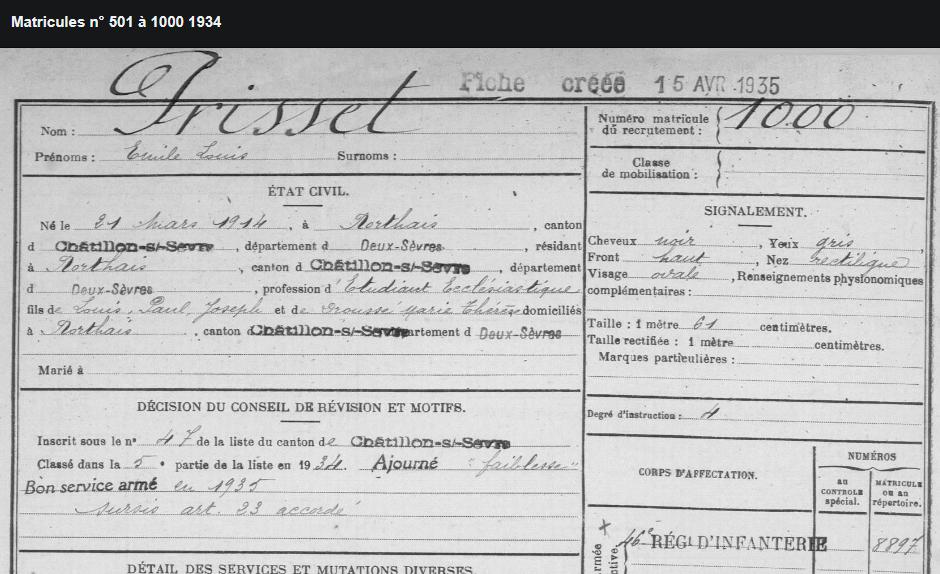 Matricules n° 501 à 1000 1934
Fiche créée 15 AVR 1935
Nom : Prisset
Prénoms : Emile Louis Surnoms :
ÉTAT CIVIL.
Né le 21 mars 1914, à Rorthais, canton
d Châtillon-s/-Sevre, département d Deux-Sèvres, résidant
à Rorthais, canton d Châtillon-s/-Sevre, département
d Deux-Sèvres, profession d'Etudiant Ecclésiastique
fils de Louis, Paul, Joseph et de Drousse Marie Thérèse domiciliés
à Rorthais, canton d Châtillon-s/-Sevre partement d Deux-Sèvres
Marié à
DÉCISION DU CONSEIL DE RÉVISION ET MOTIFS.
Inscrit sous le n° 47 de la liste du canton de Châtillon-s/-Sevre
Classé dans la 5e partie de la liste en 1934. Ajourné "faiblesse"
Bon service armé en 1935
sursis art. 23 accordé
DÉTAIL DES SERVICES ET MUTATIONS DIVERSES.
Numéro matricule du recrutement : 1000
Classe de mobilisation :
SIGNALEMENT.
Cheveux noir, Yeux gris,
Front haut, Nez rectiligne
Visage ovale, Renseignements physionomiques
complémentaires :
Taille : 1 mètre 61 centimètres.
Taille rectifiée : 1 mètre centimètres.
Marques particulières :
Degré d'instruction : 4
CORPS D'AFFECTATION.
NUMÉROS
au CONTROLE spécial.
MATRICULE ou au répertoire.
46e RÉGt D'INFANTERIE 8897